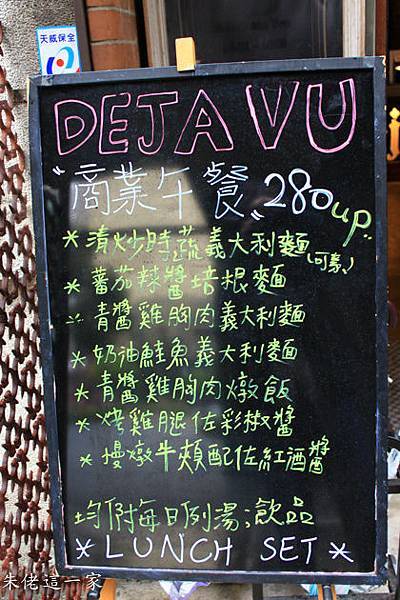 天威保全
DEJA VU
"商業午餐" 280up"
* 清炒時蔬義大利麵(可素)
* 蕃茄辣醬培根麵
* 青醬雞胸肉義大利麵
* 奶油鮭魚義大利麵
* 青醬雞胸肉燉飯
* 烤雞腿佐彩椒醬
* 慢燉牛頰配佐紅酒醬
均附每日例湯;飲品
* LUNCH SET *
朱佬這一家